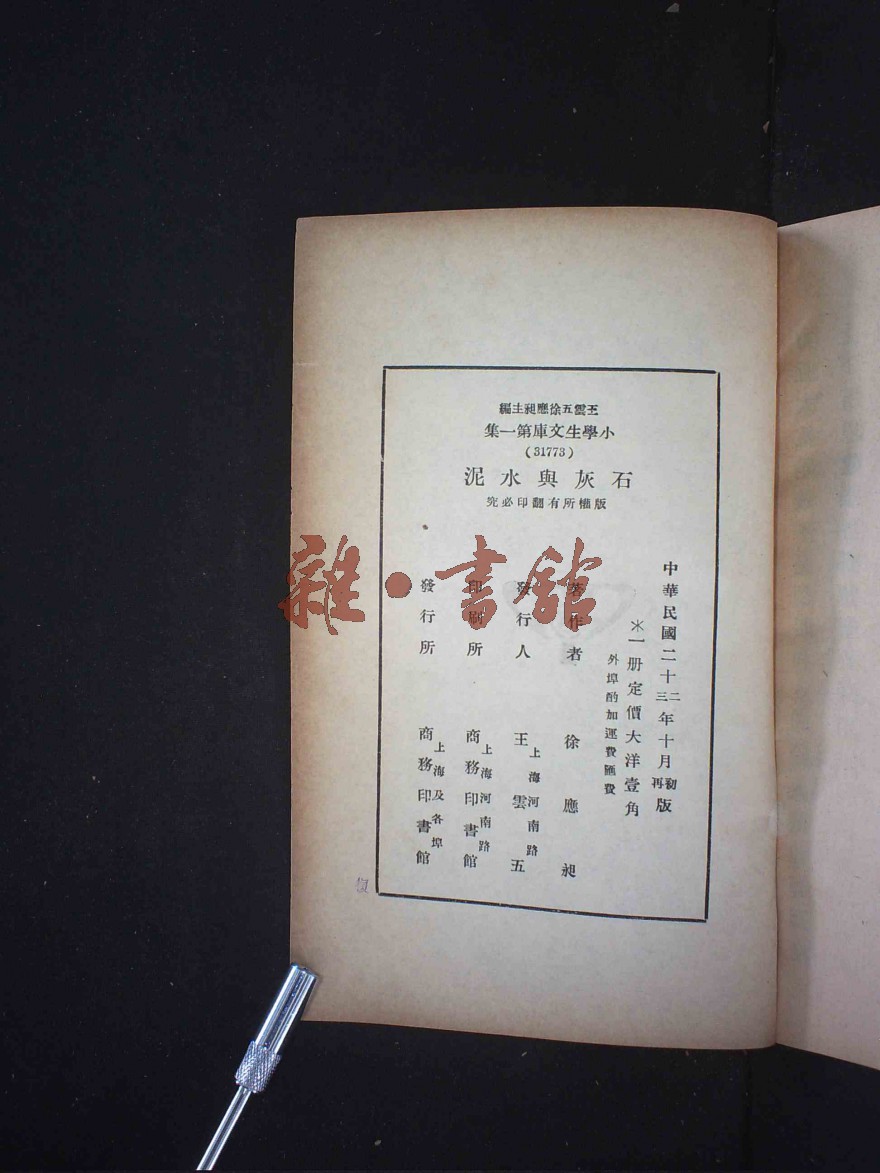 王雲五徐應昶主編
小學生文庫第一集
(31773)
石灰與水泥
版權所有翻印必究
中華民國二十二年十月初版
三再
＊一册定價大洋壹角
外埠酌加運費匯費
著作者 徐應昶
發行人 王雲五
上海河南路
印刷所 商務印書館
上海河南路
發行所 商務印書館
上海及各埠
雜·書館